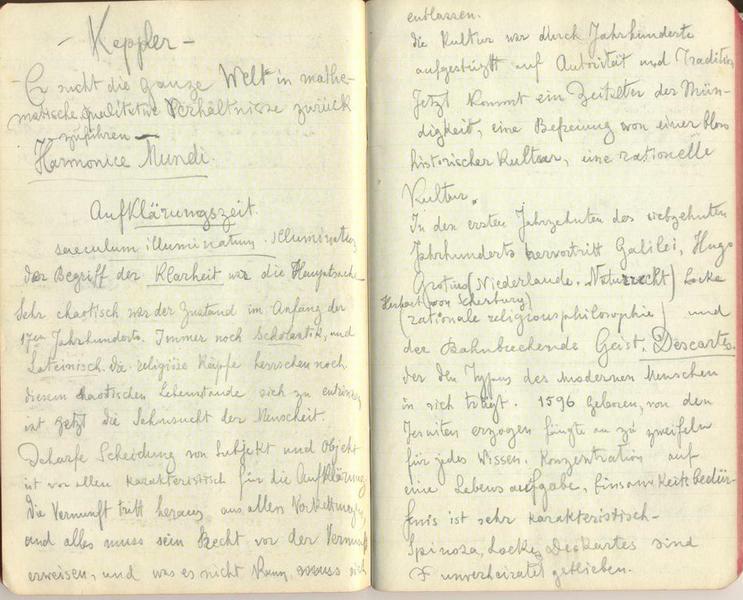 - Keppler -
Er sucht die ganze Welt in mathe-
matische, qualitative Verhältnisse zurück
zuführen -
Harmonice Mundi.
Aufklärungszeit.
saeculum illuminatum. illuminatio
der Begriff der Klarheit war die Hauptsache
Sehr chaotisch war der Zustand im Anfang der
17ten Jahrhunderts. Immer noch Scholastik, und
Lateinisch. Die religiöse Kämpfe herrschen noch
diesem chaotischen Lebenstande sich zu entringen
ist jetzt die Sehnsucht der Menscheit.
Scharfe Scheidung von Subjekt und Objekt
ist vor allem karakteristisch für die Aufklärung
Die Vernunft tritt heraus aus allen
und alles muss sein Recht vor der Vernunft
erweisen, und was es nicht kann, muss sich
entlassen.
die Kultur war durch Jahrhunderte
aufgestützt auf Autorität und Tradition
Jetzt kommt ein Zeitalter der Mün-
digkeit, eine Befreiung von einer blos
historischer Kultur, eine rationelle
Kultur.
In den ersten Jahrzehnten des siebzehnten
Jahrhunderts hervortritt Galilei, Hugo
Grotius (Niederlande. Naturrecht) Locke
Herbert (von Scherbury)
(rationale religionsphilosophie) und
der Bahnbrechende Geist. Descartes.
der den Typus des modernen Menschen
in sich trägt. 1596 geboren, von den
Jesuiten erzogen fängte an zu zweifeln
für jedes Wissen. Konzentration auf
eine Lebensaufgabe, Einsamkeitsbedür-
fnis ist sehr karakteristisch -
Spinoza, Locke, Deskartes sind
unverheiratet geblieben.